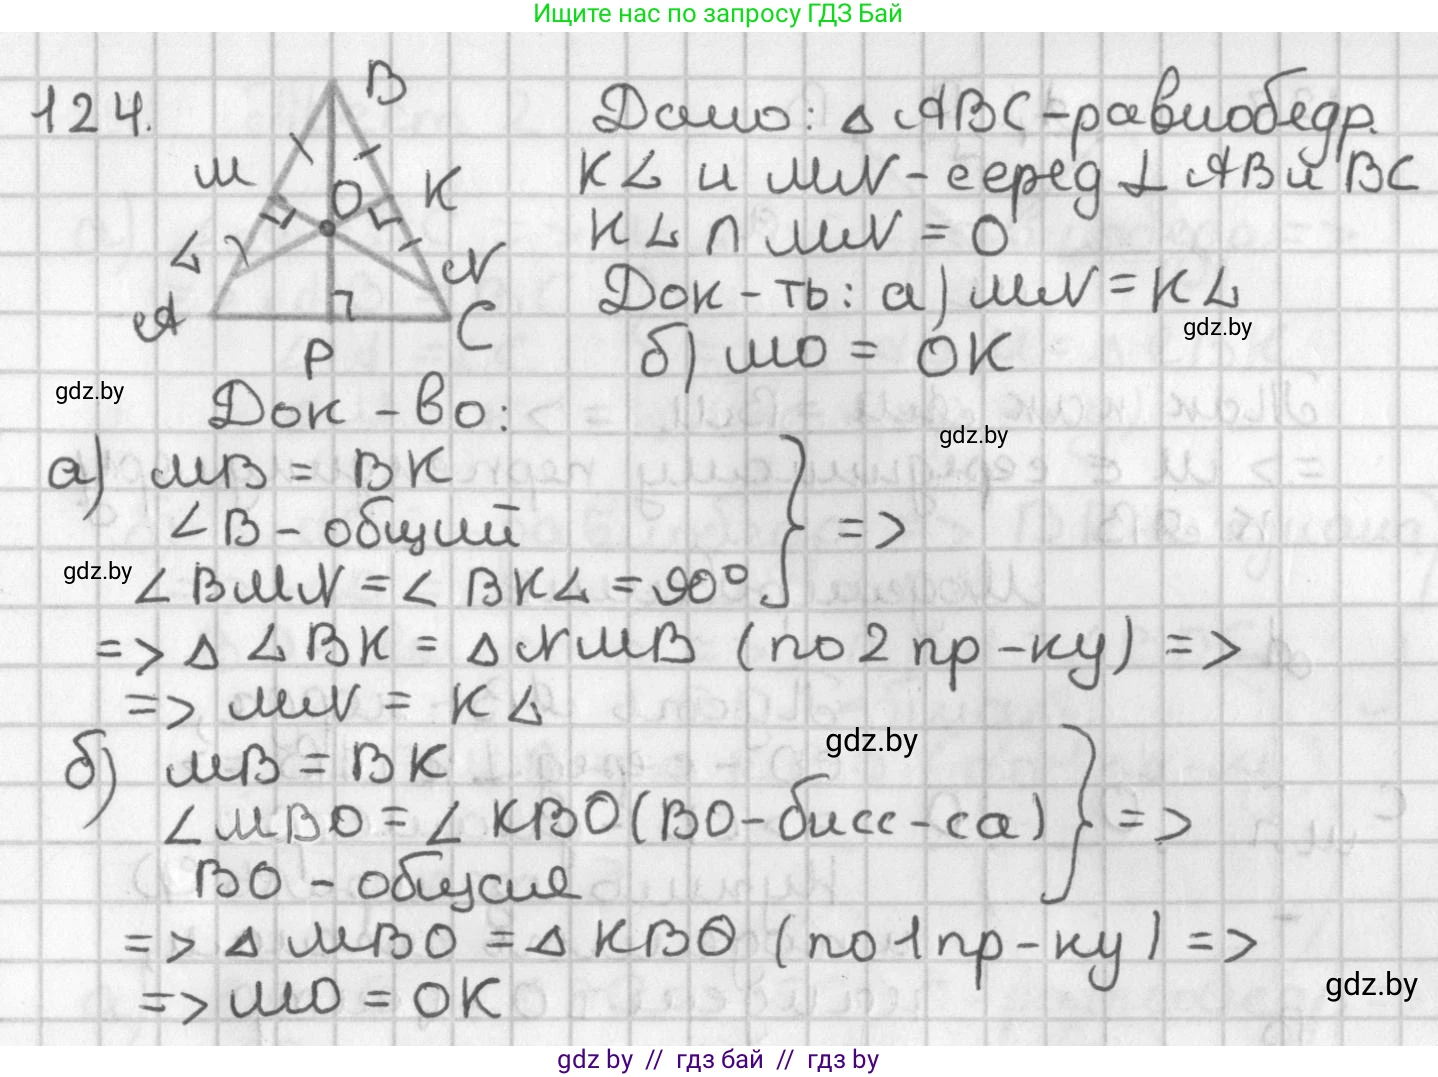 Ищите нас по запросу ГДЗ Бай
124.
B
M
O
K
L
N
A
P
C
Дано: △ ABC - равнобедр.
KL и MN - серед ⊥ AB и BC
KL ∩ MN = O
Док - ть: а) MN = KL
gdz.by
б) MO = OK
gdz.by
Док - во:
gdz.by
а) MB = BK
∠B - общий
=>
gdz.by
∠BMN = ∠ BKL = 90°
=> △ LBK = △ NMB (по 2 пр - ку) =>
=> MN = KL
gdz.by
б) MB = BK
∠MBO = ∠ KBO (BO - бисс - са) =>
BO - общая
=> △ MBO = △ KBO (по 1 пр - ку) =>
gdz.by
=> MO = OK
gdz by // гдз бай // гдз by